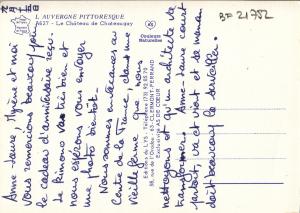 L'AUVERGNE PITTORESQUE
4627 - Le Château de Chateaugay
Couleurs
Naturelles
BF 21752
Anne-Laure, Mylène et moi
vous remercions beaucoup pour
le cadeau d'anniversaire reçu.
Le kimono va bien et
nous espérons vous envoyer
une photo bientôt.
Nous sommes en vacances au
Centre de la France, dans une
vieille ferme que nous
nettoyons et qu'un architecte de
transformer. Anne-Laure court
partout, va et vient et sa maman
doit beaucoup la surveiller.
63 - CLERMONT-FERRAND
Exclusivité AS DE COEUR